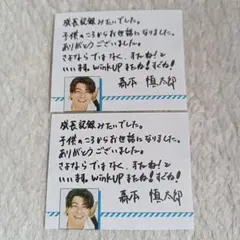 成長記録みたいでした。
子供のころからお世話になりました。
ありがとうございました。
さよならではなく、またね!と
いいます。WiNKUP またね!すぐね!
森本 慎太郎
成長記録みたいでした。
子供のころからお世話になりました。
ありがとうございました。
さよならではなく、またね!と
いいます。WiNKUP またね!すぐね!
森本 慎太郎